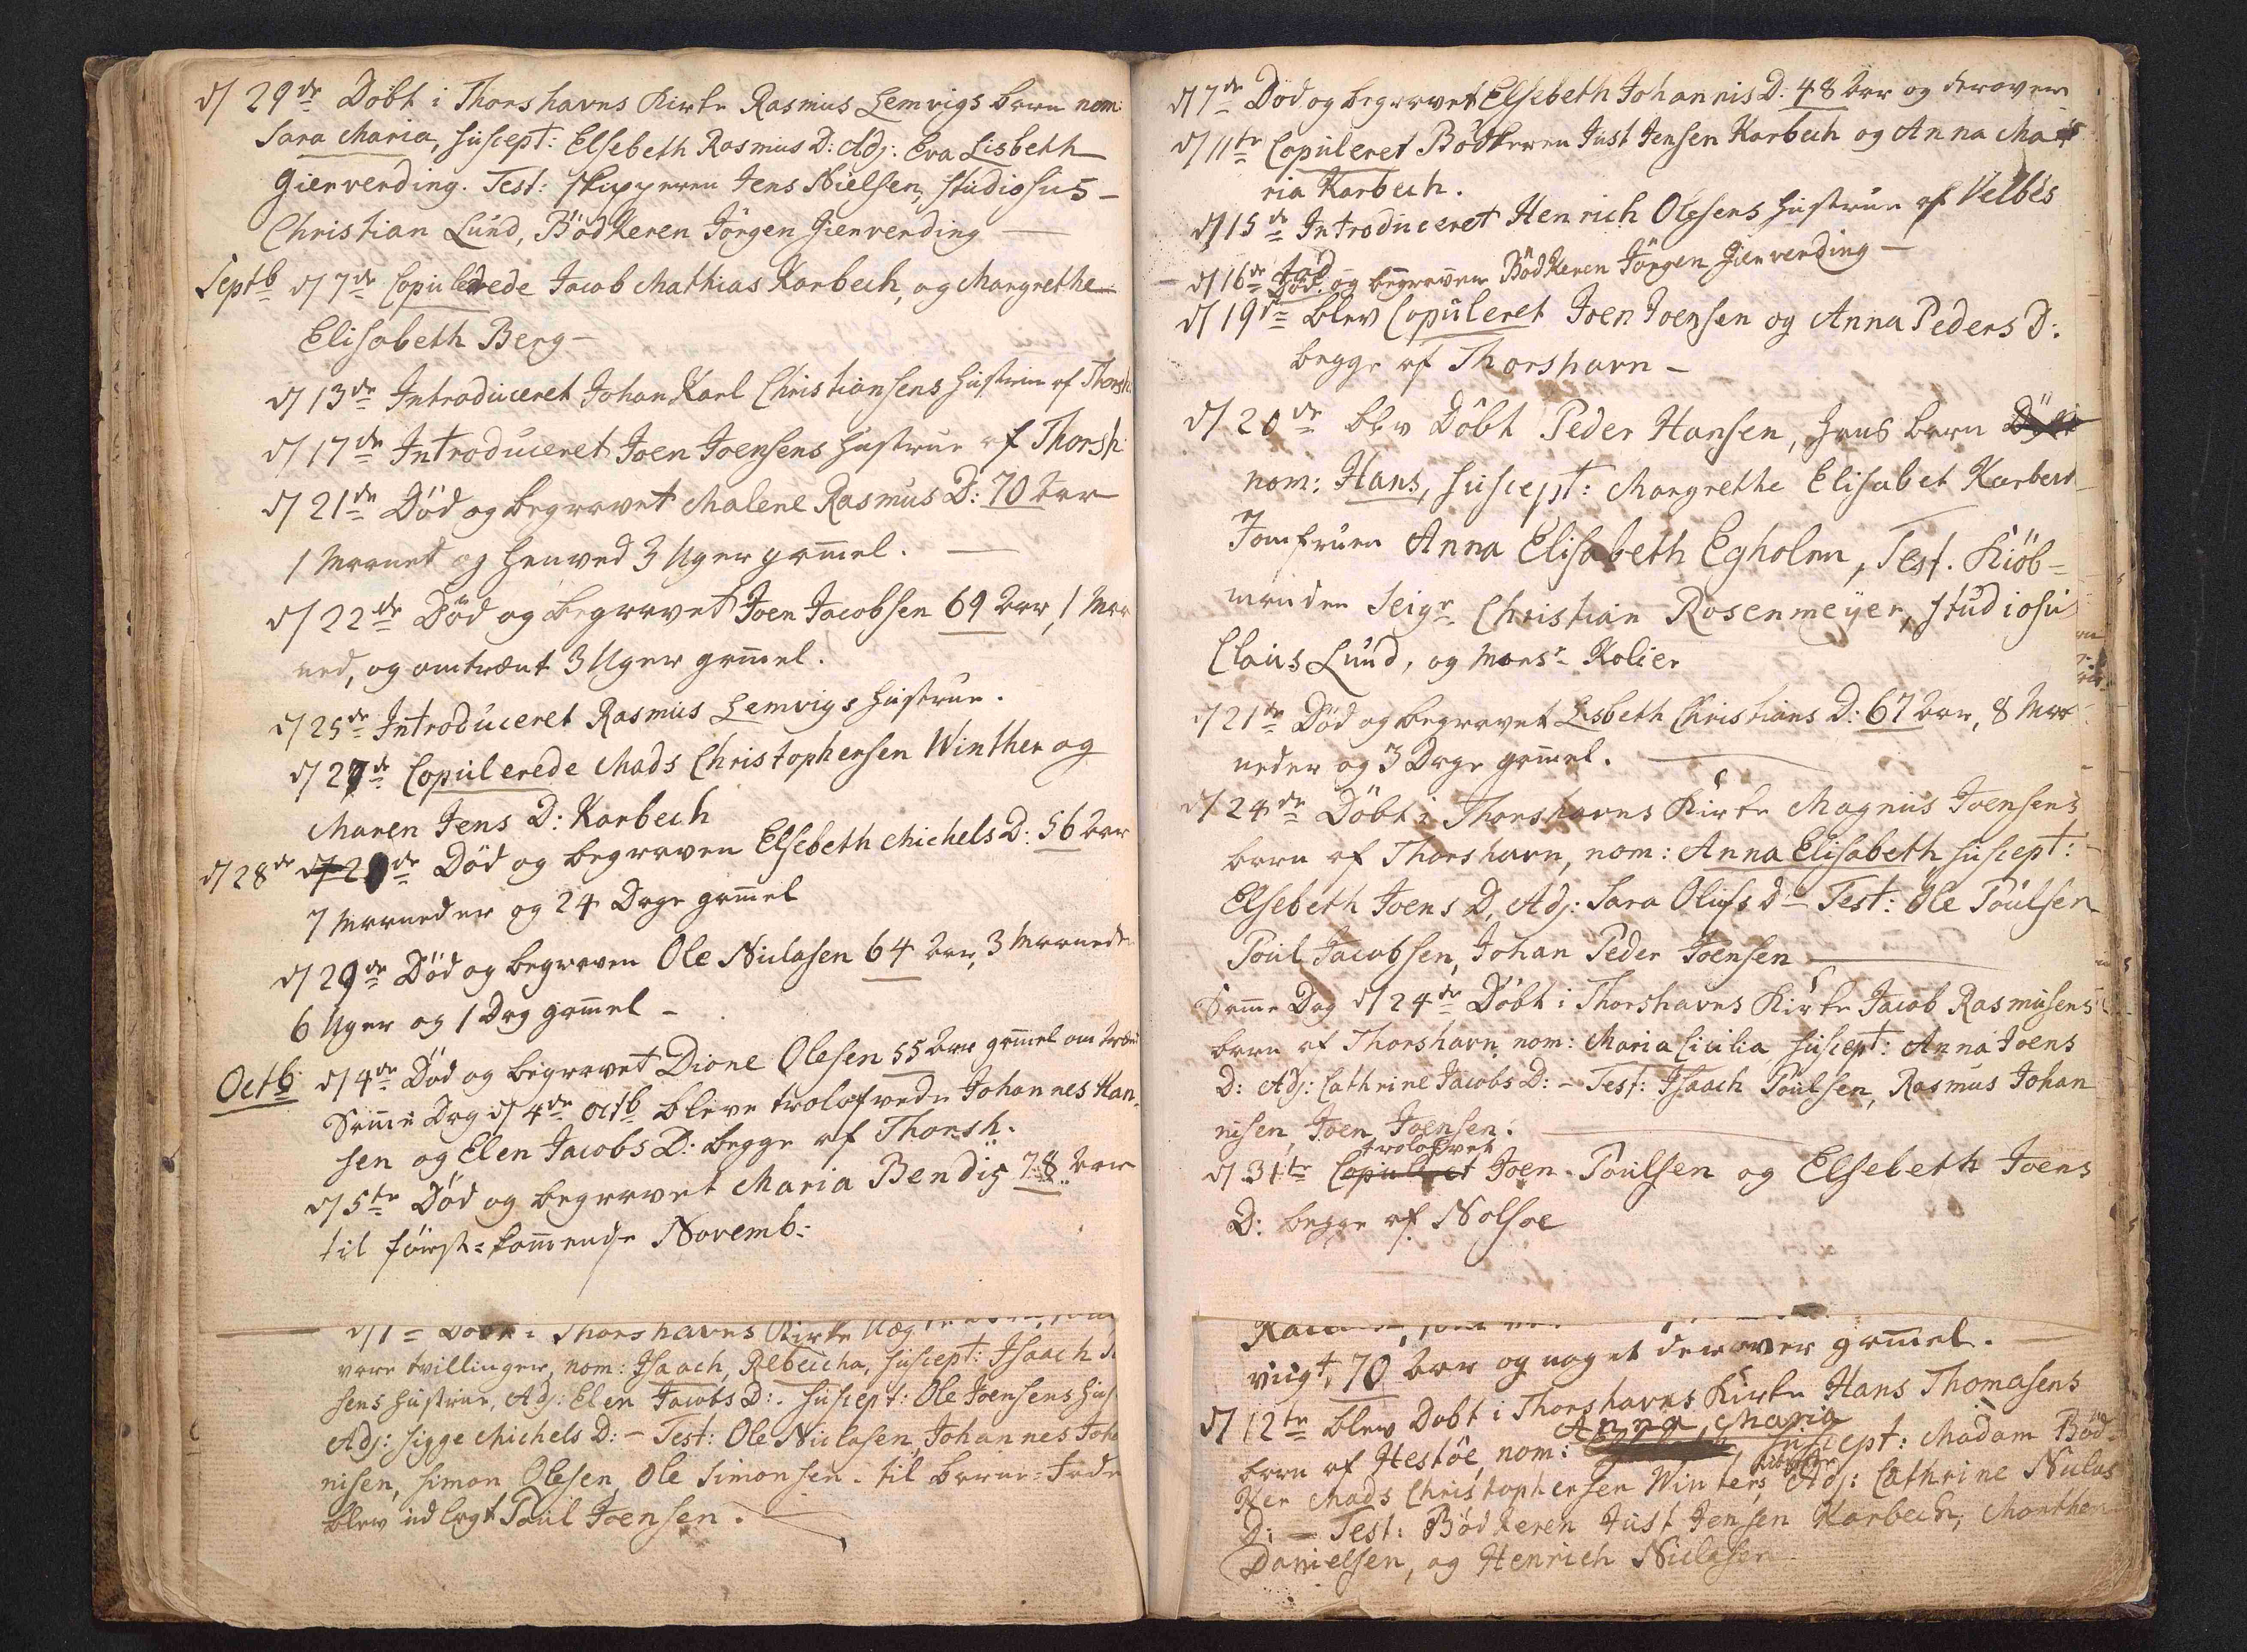 d/ 29de Döbt i Thorshavns Kirke Rasmus Lemvigs barn nom:
Sara Maria, Suscept: Elsebeth Rasmus D: Adj: Eva Lisbeth
Gierverding. Test: Skipperen Jens Nielsen, Studiosus
Christian Lund, Bödkeren Jörgen Gierverding —
Septb d/ 7de Copulerede Jacob Mathias Karbech, og Margrethe
Elisabeth Berg –
d/ 13de Introduceret Johan Karl Christiansens Hustrue af Thorsh
d/ 17de Introduceret Joen Joensens Hustrue af Thorsh:
d/ 21de Död og begravet Malene Rasmus D: 70 Aar
1 Maanet og henved 3 Uger gammel. —
d/ 22de Död og begravet Joen Jacobsen 69 Aar, 1 Maa
ned, og omtrent 3 Uger gammel.
d/ 25de Introduceret Rasmus Lemvigs Hustrue.
d/ 27de Copulerede Mads Christophersen Winther og
Maren Jens D: Karbech
d/ 28de Död og begraven Elsebeth Michels D: 56 Aar
7 Maaneder og 24 Dage gammel
d/ 29de Död og begraven Ole Niclasen 64 Aar, 3 Maaneder
6 Uger og 1 Dag gammel –
Octb: d/ 4de Död og begravet Dione Olesen 55 Aar gammel omtrent
Samme Dag d/ 4de Octb bleve trolofvede Johannes Han,
sen og Elen Jacobs D: begge af Thorsh.
d/ 5te Död og begravet Maria Bendis 78 Aar
til först-kommende Novemb:
d/ 1 Döbt i Thorshavns Kirke
vare tvillinger, nom: Isaach, Rebeicha, Suscept: Isaach
sens Hustrue, Adj: Elen Jacobs D:. Suscept: Ole Joensens Hus
Adj: Sigge Michels D: – Test: Ole Niclasen, Johannes Joha
nisen, Simon Olesen, Ole Simonsen. til barne-Fader
blev udlagt Poul Joensen.
d/ 7de Död og begravet Elsebeth Johannis D: 48 Aar og derover
d/ 11te Copuleret Bödkeren Just Jensen Karbech og Anna Ma
ria Karbech.
d/ 15de Introduceret Henrich Olesens Hustrue af Velbes
d/ 16de Död og begraven Bödkeren Jörgen Gierverding –
d/ 19de blev Copuleret Joen Joensen og Anna Peders D:
begge af Thorshavn –
d/ 20de blev Döbt Peder Hansen, hans barn
nom: Hans, Suscept: Margrethe Elisabet Karbech
Jomfruen Anna Elisabeth Egholm, Test. Kiöb-
manden Seigr Christian Rosenmeÿer, Studiosu
Claus Lund, og Monsr Kolier
d/ 21de Död og begravet Lisbeth Christians D: 67 Aar, 8 Maa
neder og 3 Dage gammel. —
d/ 24de Döbt i Thorshavns Kirke Magnus Joensens
barn af Thorshavn, nom: Anna Elisabeth Suscept:
Elsebeth Joens D, Adj: Sara Olufs d – Test: Ole Poulsen
Poul Jacobsen, Johan Peder Joensen —
Samme Dag d/ 24de Döbt i Thorshavns Kirke Jacob Rasmusens
barn af Thorshavn, nom: Maria Cicilia, Suscept: Anna Joens
D: Adj: Cathrine Jacobs D: – Test: Isaach Poulsen, Rasmus Johan
nisen, Joen Joensen. —
d/ 31te Copuleret trolofvet Joen Poulsen og Elsebeth Joens
D: begge af Nolsoe
viigt, 70 Aar og noget derover gammel. —
d/ 12te blev Döbt i Thorshavns Kirke Hans Thomasens
barn af Hestöe, nom: Anna Maria Suscept: Madam Böd-
ker Mads Christophersen Winters Hustrue, Adj: Cathrine Niclas
D: – Test: Bödkeren Just Jensen Karbech, Morthen
Danielsen, og Henrich Niclasen